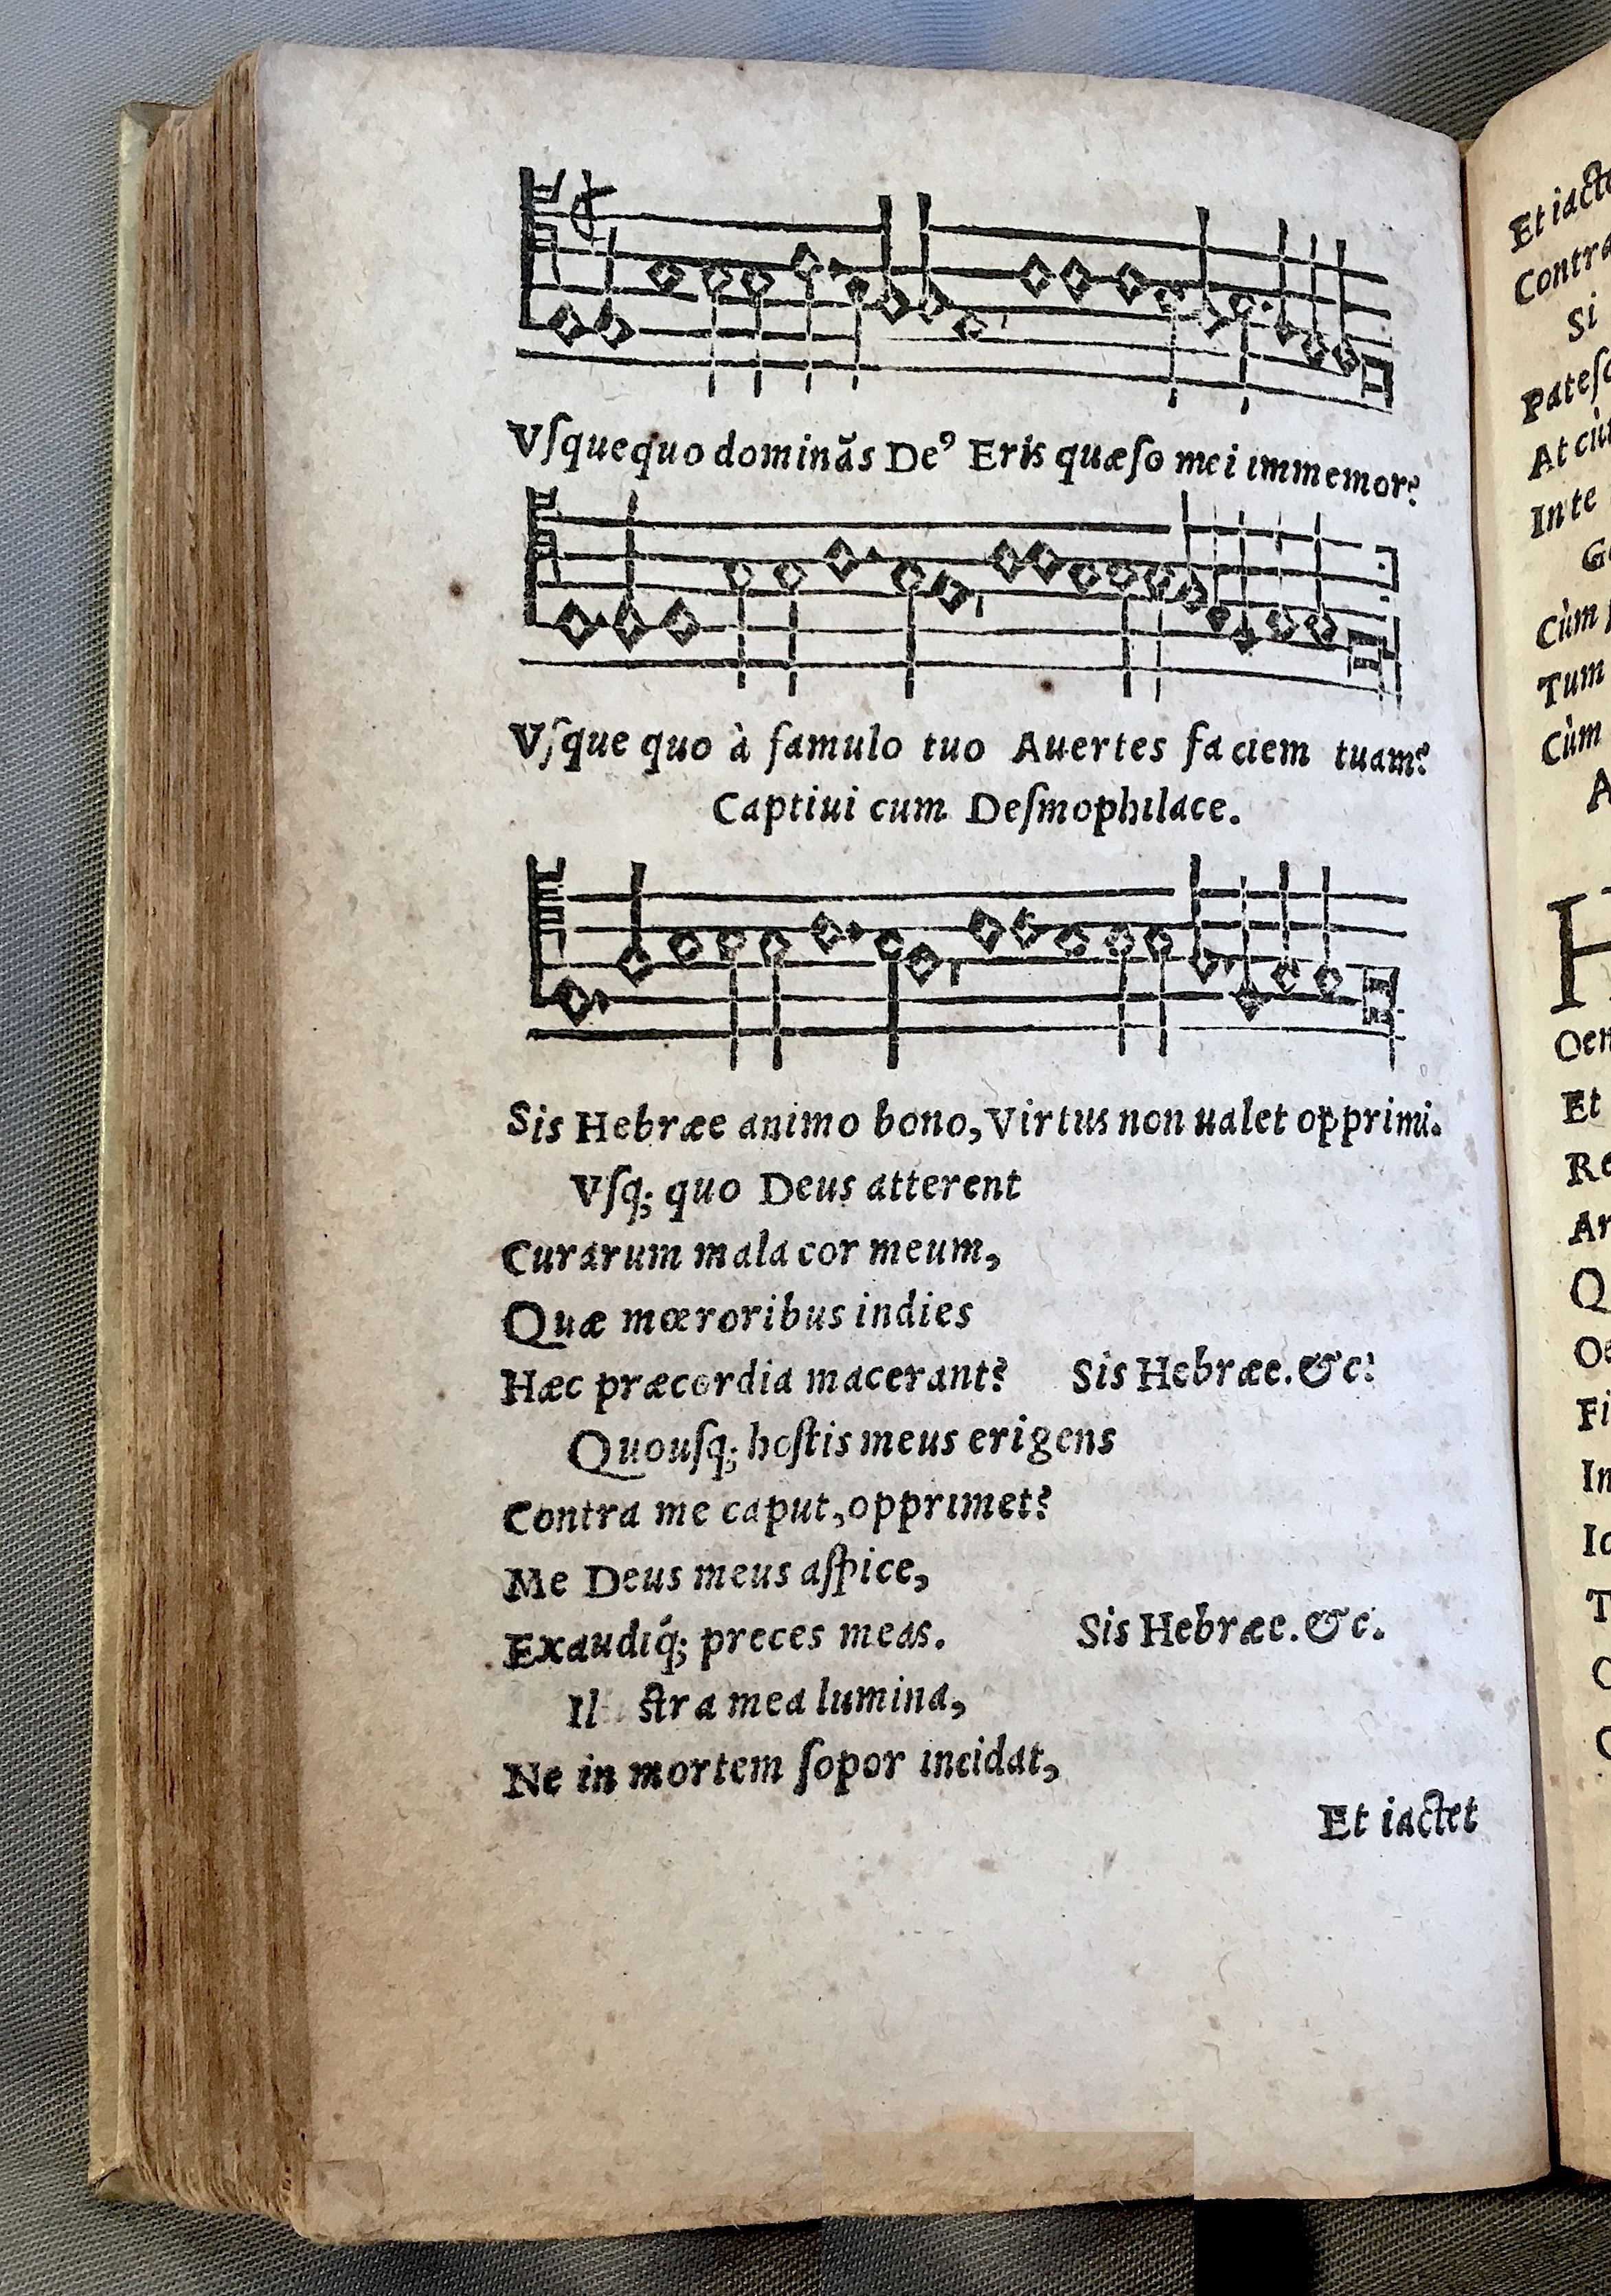 Vſquequo dominãs Deꝰ Eris quæſo mei immemor?
Vſque quo à famulo tuo Auertes faciem tuam?
Captiui cum Deſmophilace.
Sis Hebræe animo bono, Virtus non ualet opprimi.
Vſq; quo Deus atterent
Curarum mala cor meum,
Quæ mœroribus indies
Hæc præcordia macerant? Sis Hebræe. &c.
Quouſq; hoſtis meus erigens
Contra me caput, opprimet?
Me Deus meus aſpice,
Exaudiq́; preces meas. Sis Hebræe. &c.
Il ſtra mea lumina,
Ne in mortem ſopor incidat,
Et iactet
Et iacte
Contra
Si
Pateſc
At cùm
In te
Cùm
Tum
Cùm
A
H
Oen
Et
Re
Ar
Q
Oe
Fi
In